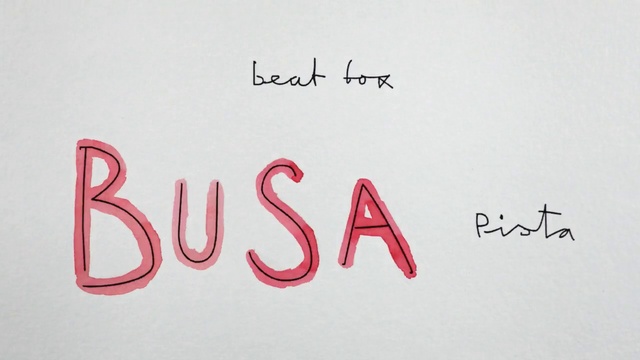 beat box
BUSA
Pista